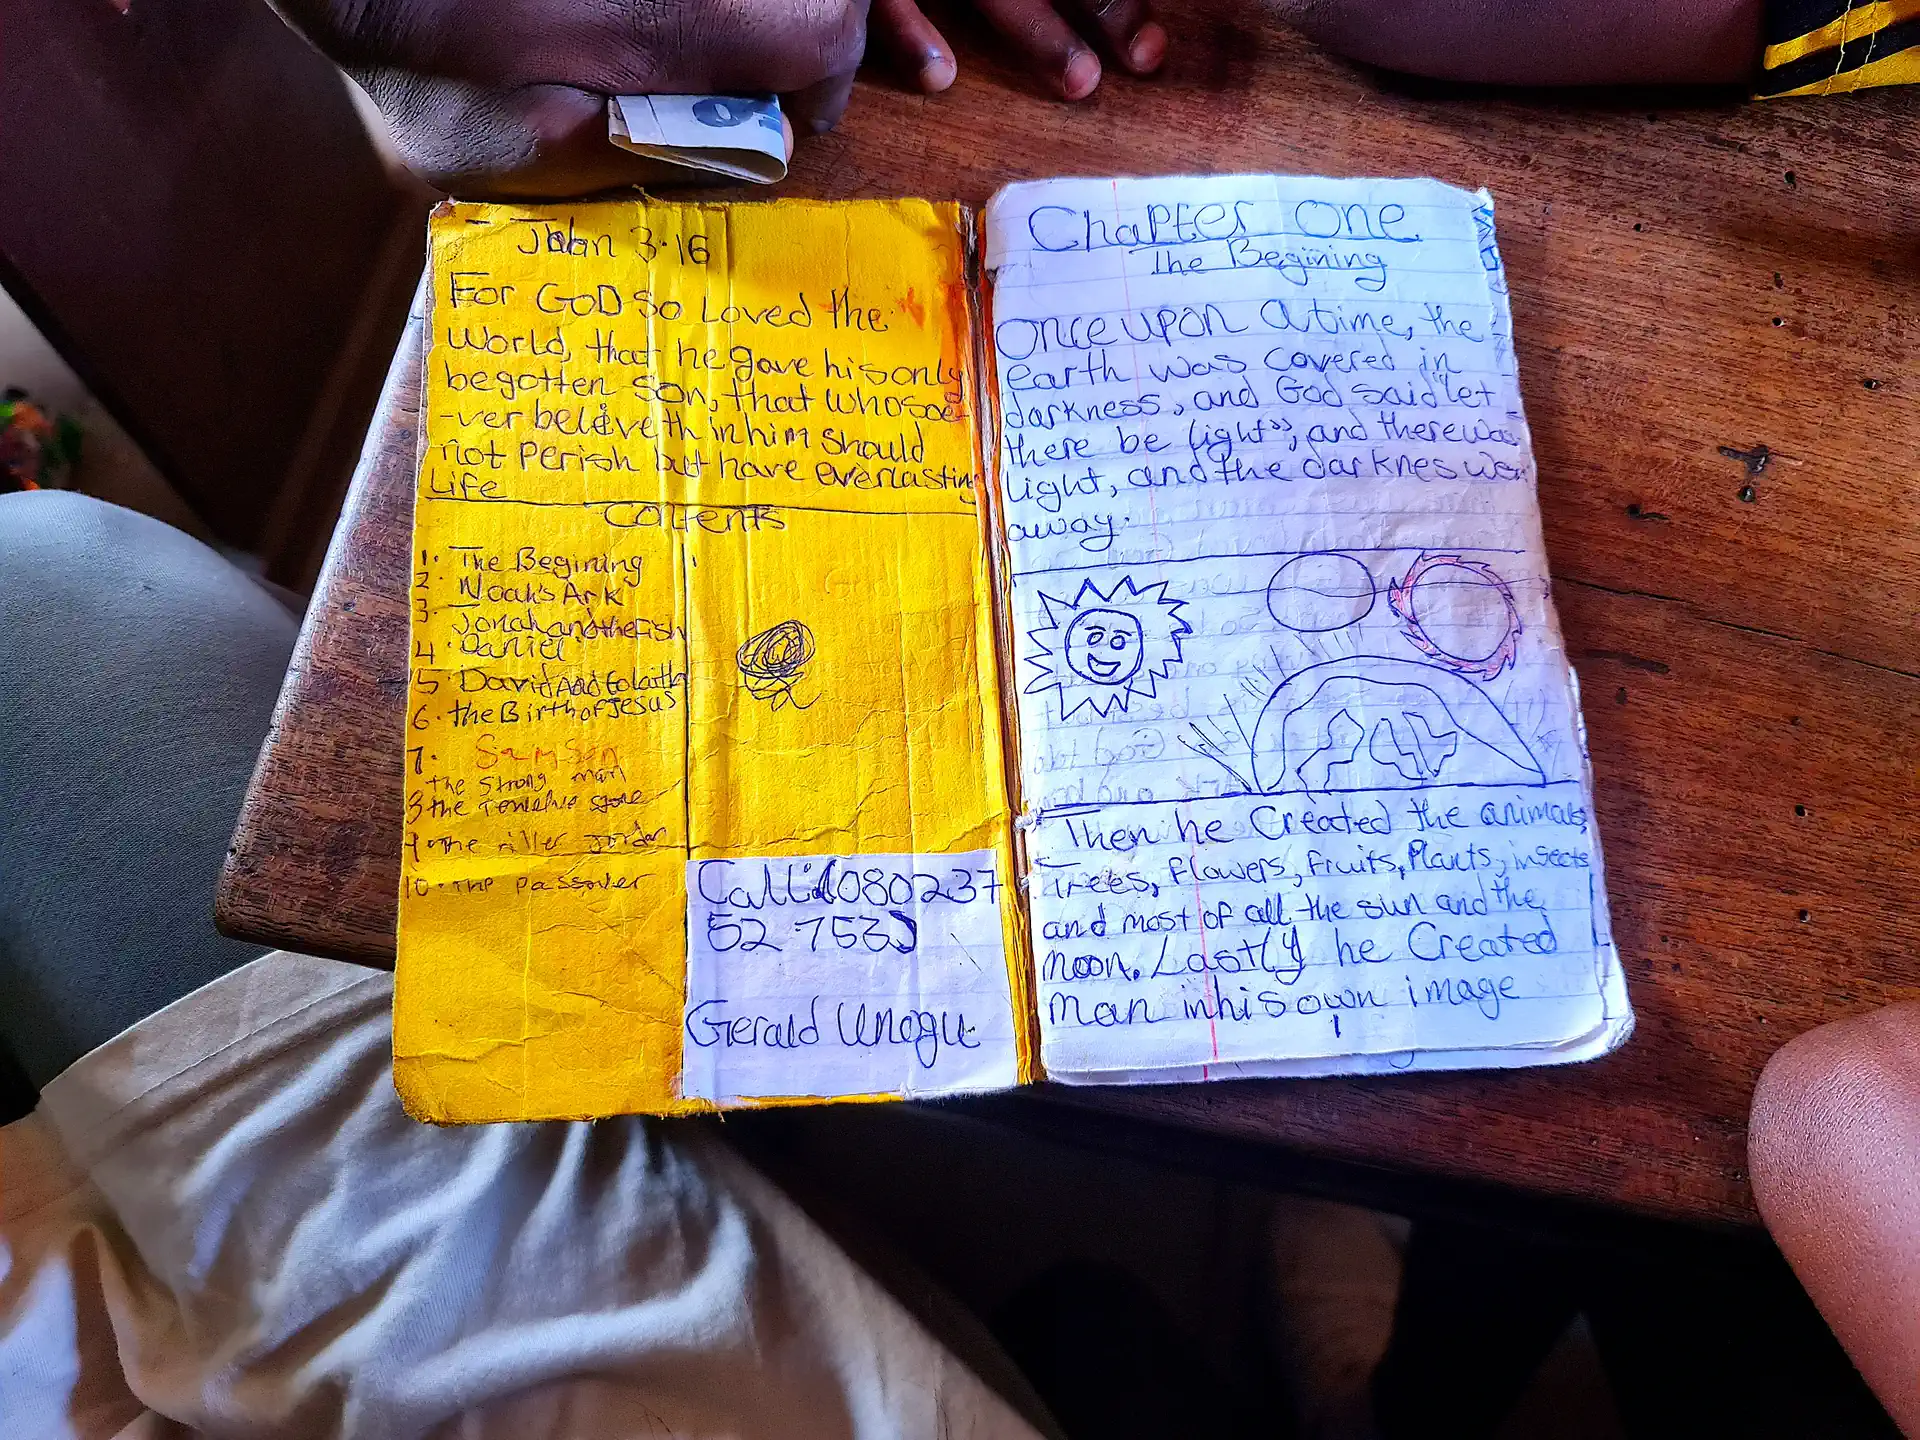 John 3:16
For GOD So Loved the
World, that he gave his only
begotten Son, that whosoe
-ver believeth in him should
not Perish but have everlasting
Life
Contents
1. The Begining
2. Noah's Ark
3. Jonah and the Fish
4. Daniel
5 David And Golaith
6. the Birth of Jesus
7. Samson
the strong man
8 the
9. The
10. The passover
Call: 080237
52 753
Gerald Unogu
Chapter One
The Begining
Once upon a time, the
earth was covered in
darkness, and God said "let
there be light", and there was
light, and the darknes was
away.
Then he Created the animals,
Trees, Flowers, Fruits, Plants, insects
and most of all the sun and the
moon. Lastly he Created
Man in his own image
1